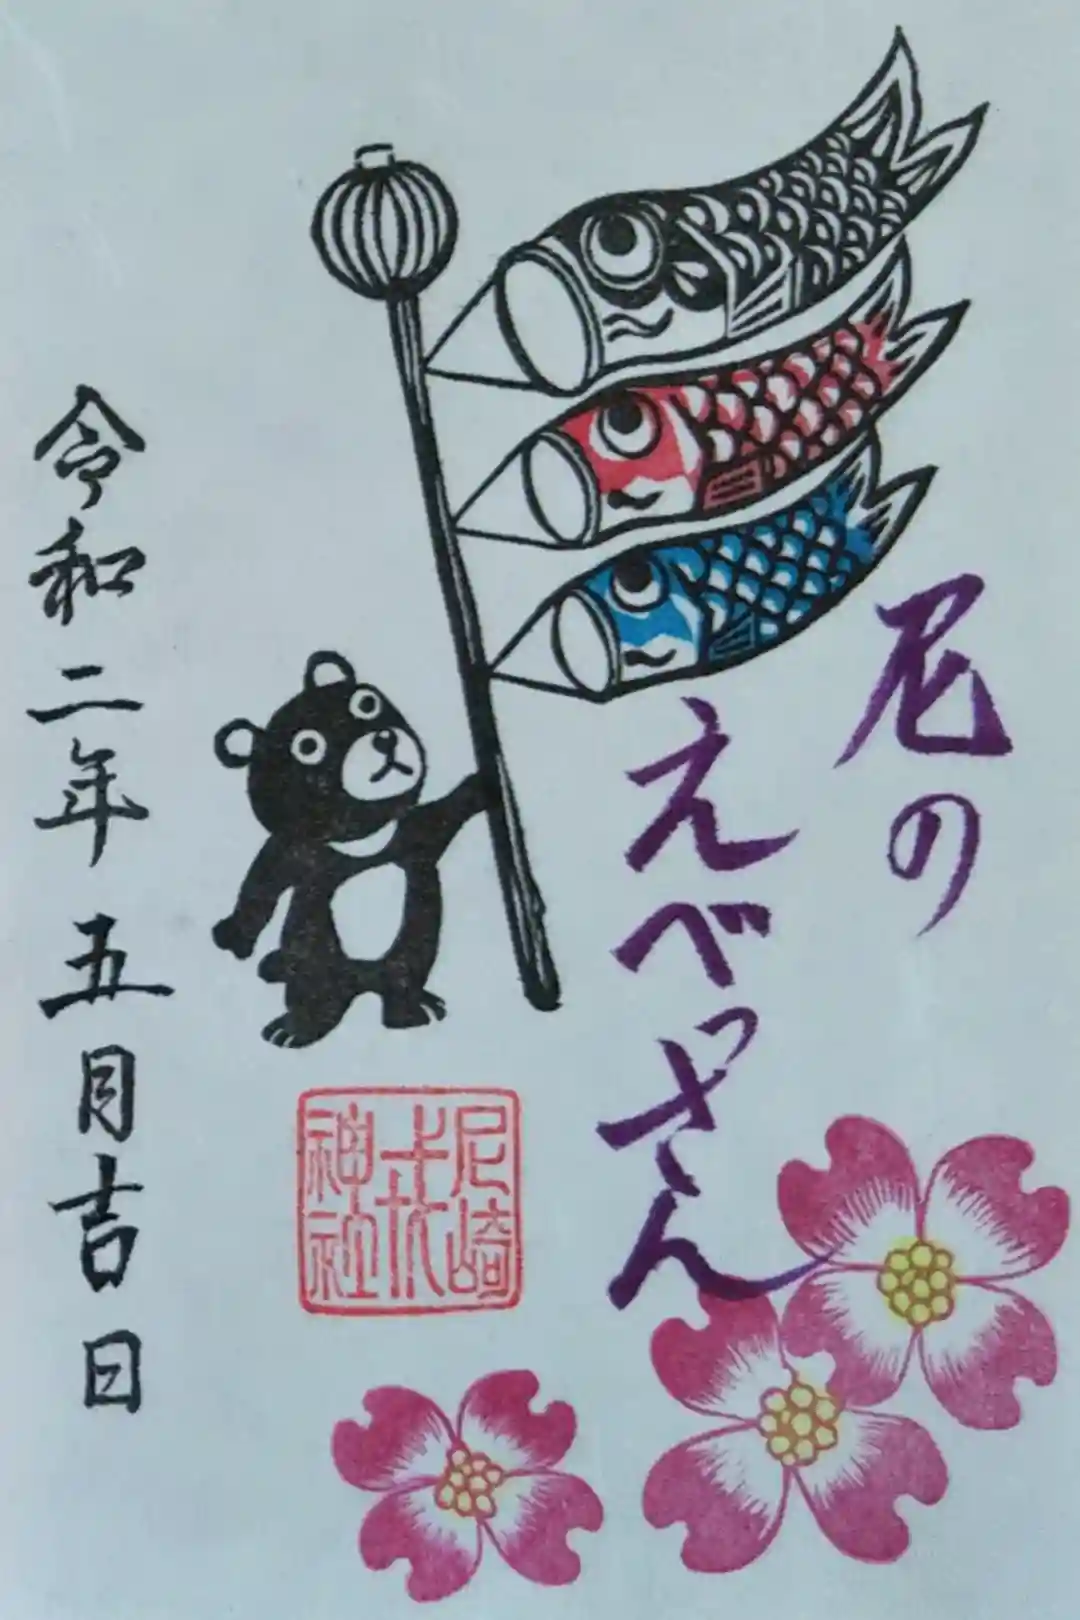 尼の
えべっさん
尼崎
戎
神社
令和二年五月吉日